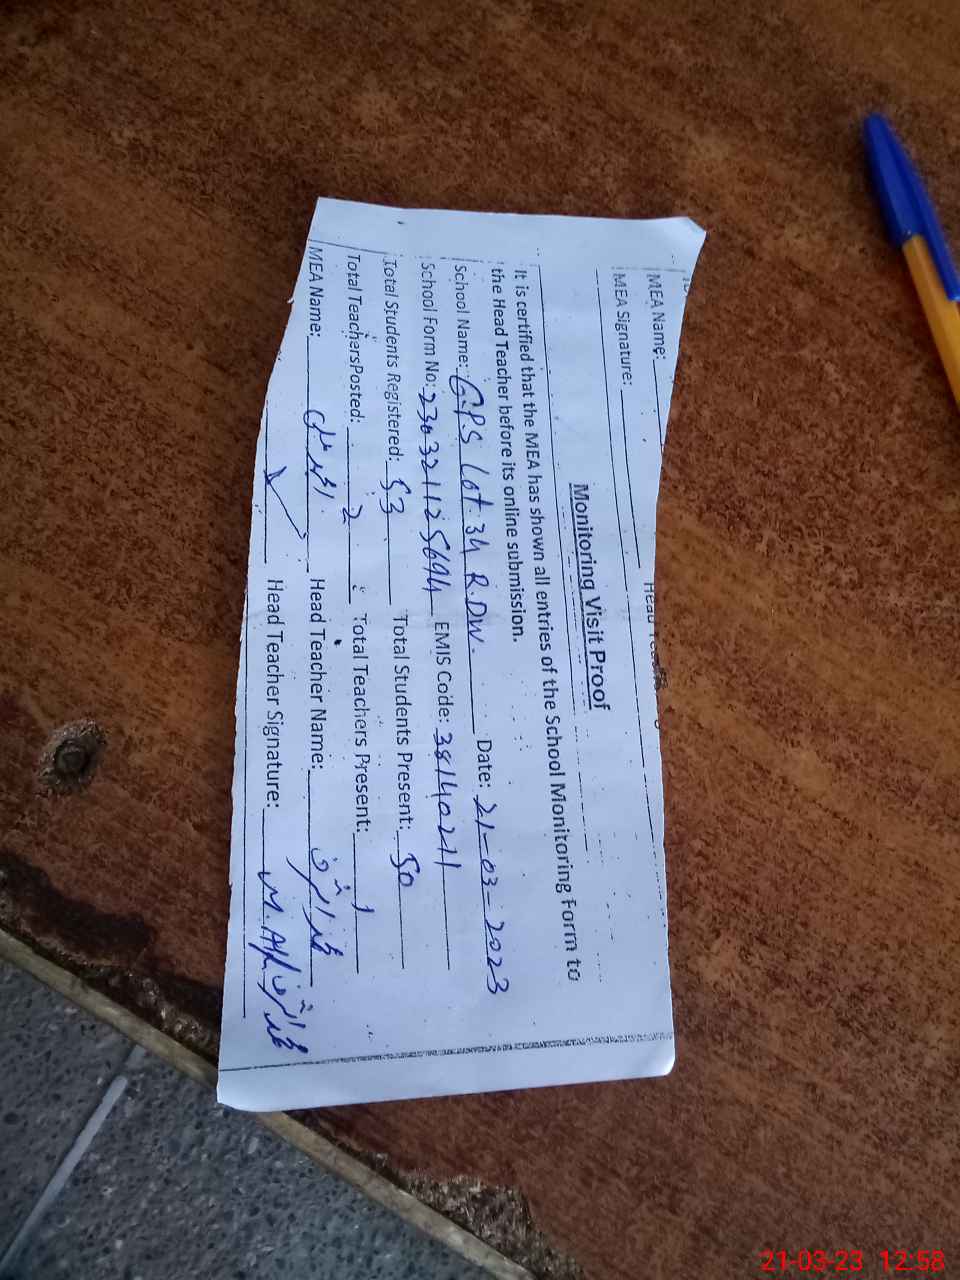 MEA Name:
MEA Signature:
Monitoring Visit Proof
It is certified that the MEA has shown all entries of the School Monitoring Form to
the Head Teacher before its online submission.
School Name: G.P.S Lot 34 R.DW. Date: 21-03-2023
School Form No: 230321125694 EMIS Code: 38140211
Total Students Registered: 53 Total Students Present: 50
Total TeachersPosted: 2 Total Teachers Present: 1
MEA Name: Head Teacher Name:
Head Teacher Signature:
21-03-23 12:58